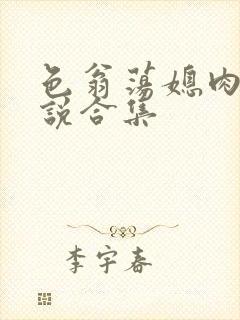 色翁荡媳肉
说合集
李宇春